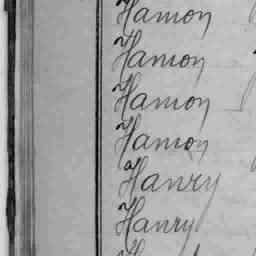 Hamon
Hamon
Hamon
Hamon
Hanry
Hanry